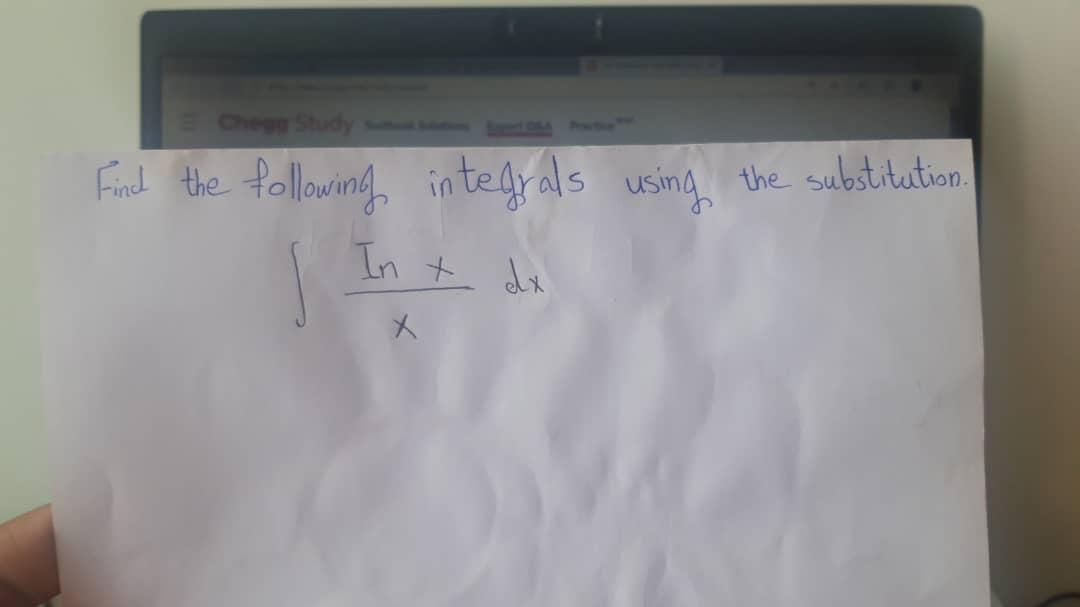 Chegg Study Textbook Solutions Expert Q&A Practice
Find the following integrals using the substitution.
∫ In x dx
x